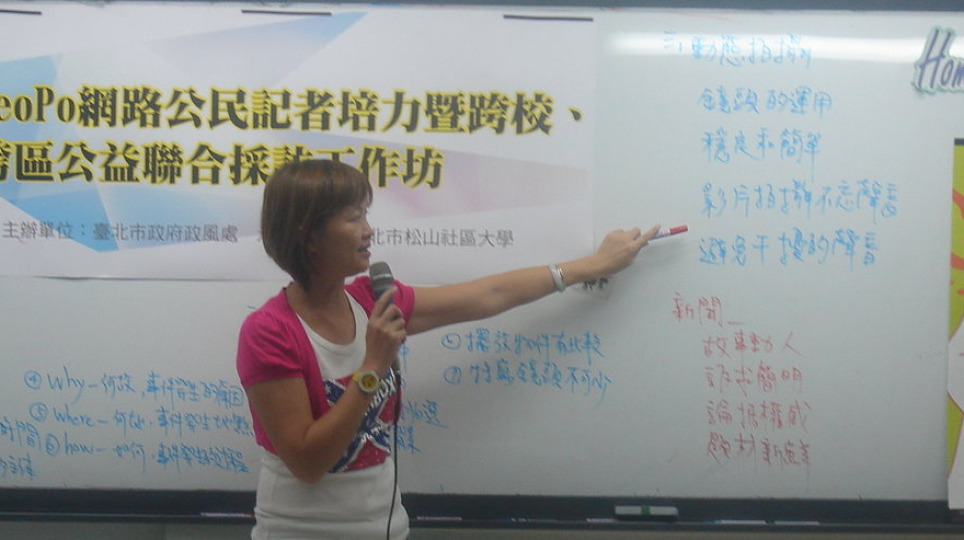 eoPo網路公民記者培力暨跨校、
跨區公益聯合採訪工作坊
主辦單位：臺北市政府政風處
北市松山社區大學
Hom
三、動態拍攝
鏡頭的運用
穩定和簡單
影片拍攝不忘聲音
避免干擾的聲音
新聞—
故事動人
訴求簡明
論据權威
題材新鮮
⑥擺放物件有比較
⑦特寫鏡頭不可少
④Why—何故，事件發生的原因
⑤where—何處，事件發生地點
時間⑥how—如何，事件發生的過程